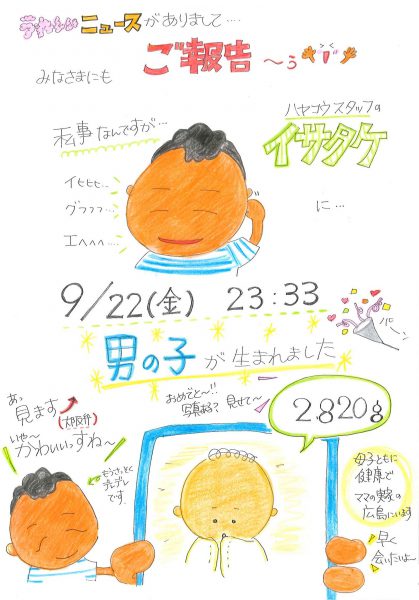 うれしいニュースがありまして‥‥
みなさまにも
ご報告〜う
私事なんですが…
ハヤコウスタッフの
イサタケ
に…
イヒヒヒ…
グフフフ…
エヘヘヘ…
9/22(金) 23:33
男の子が生まれました
あっ
見ます
(大阪弁)
いや〜
かわいいっすね〜
もうさっそく
デレデレ
です
おめでと〜!!
写真ある? 見せて〜
2820g
母子ともに
健康で
ママの実家の
広島にいます
早く
会いたいよ〜